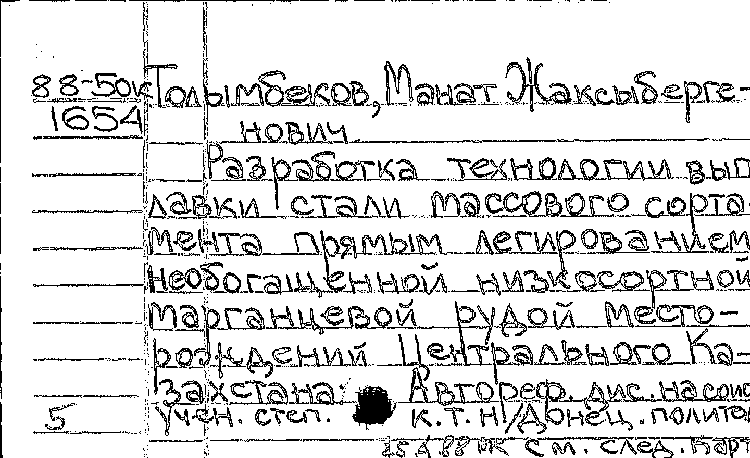 88-50к Толымбеков, Манат Жаксыберге-
1654 нович.
Разработка технологии вып
лавки стали массового сорта-
мента прямым легированием
необогащенной низкосортной
марганцевой рудой место-
рождений Центрального Ка-
захстана: Автореф. дис. на соис
5 учен. степ. к.т.н/Донец. политех
См. след. карт